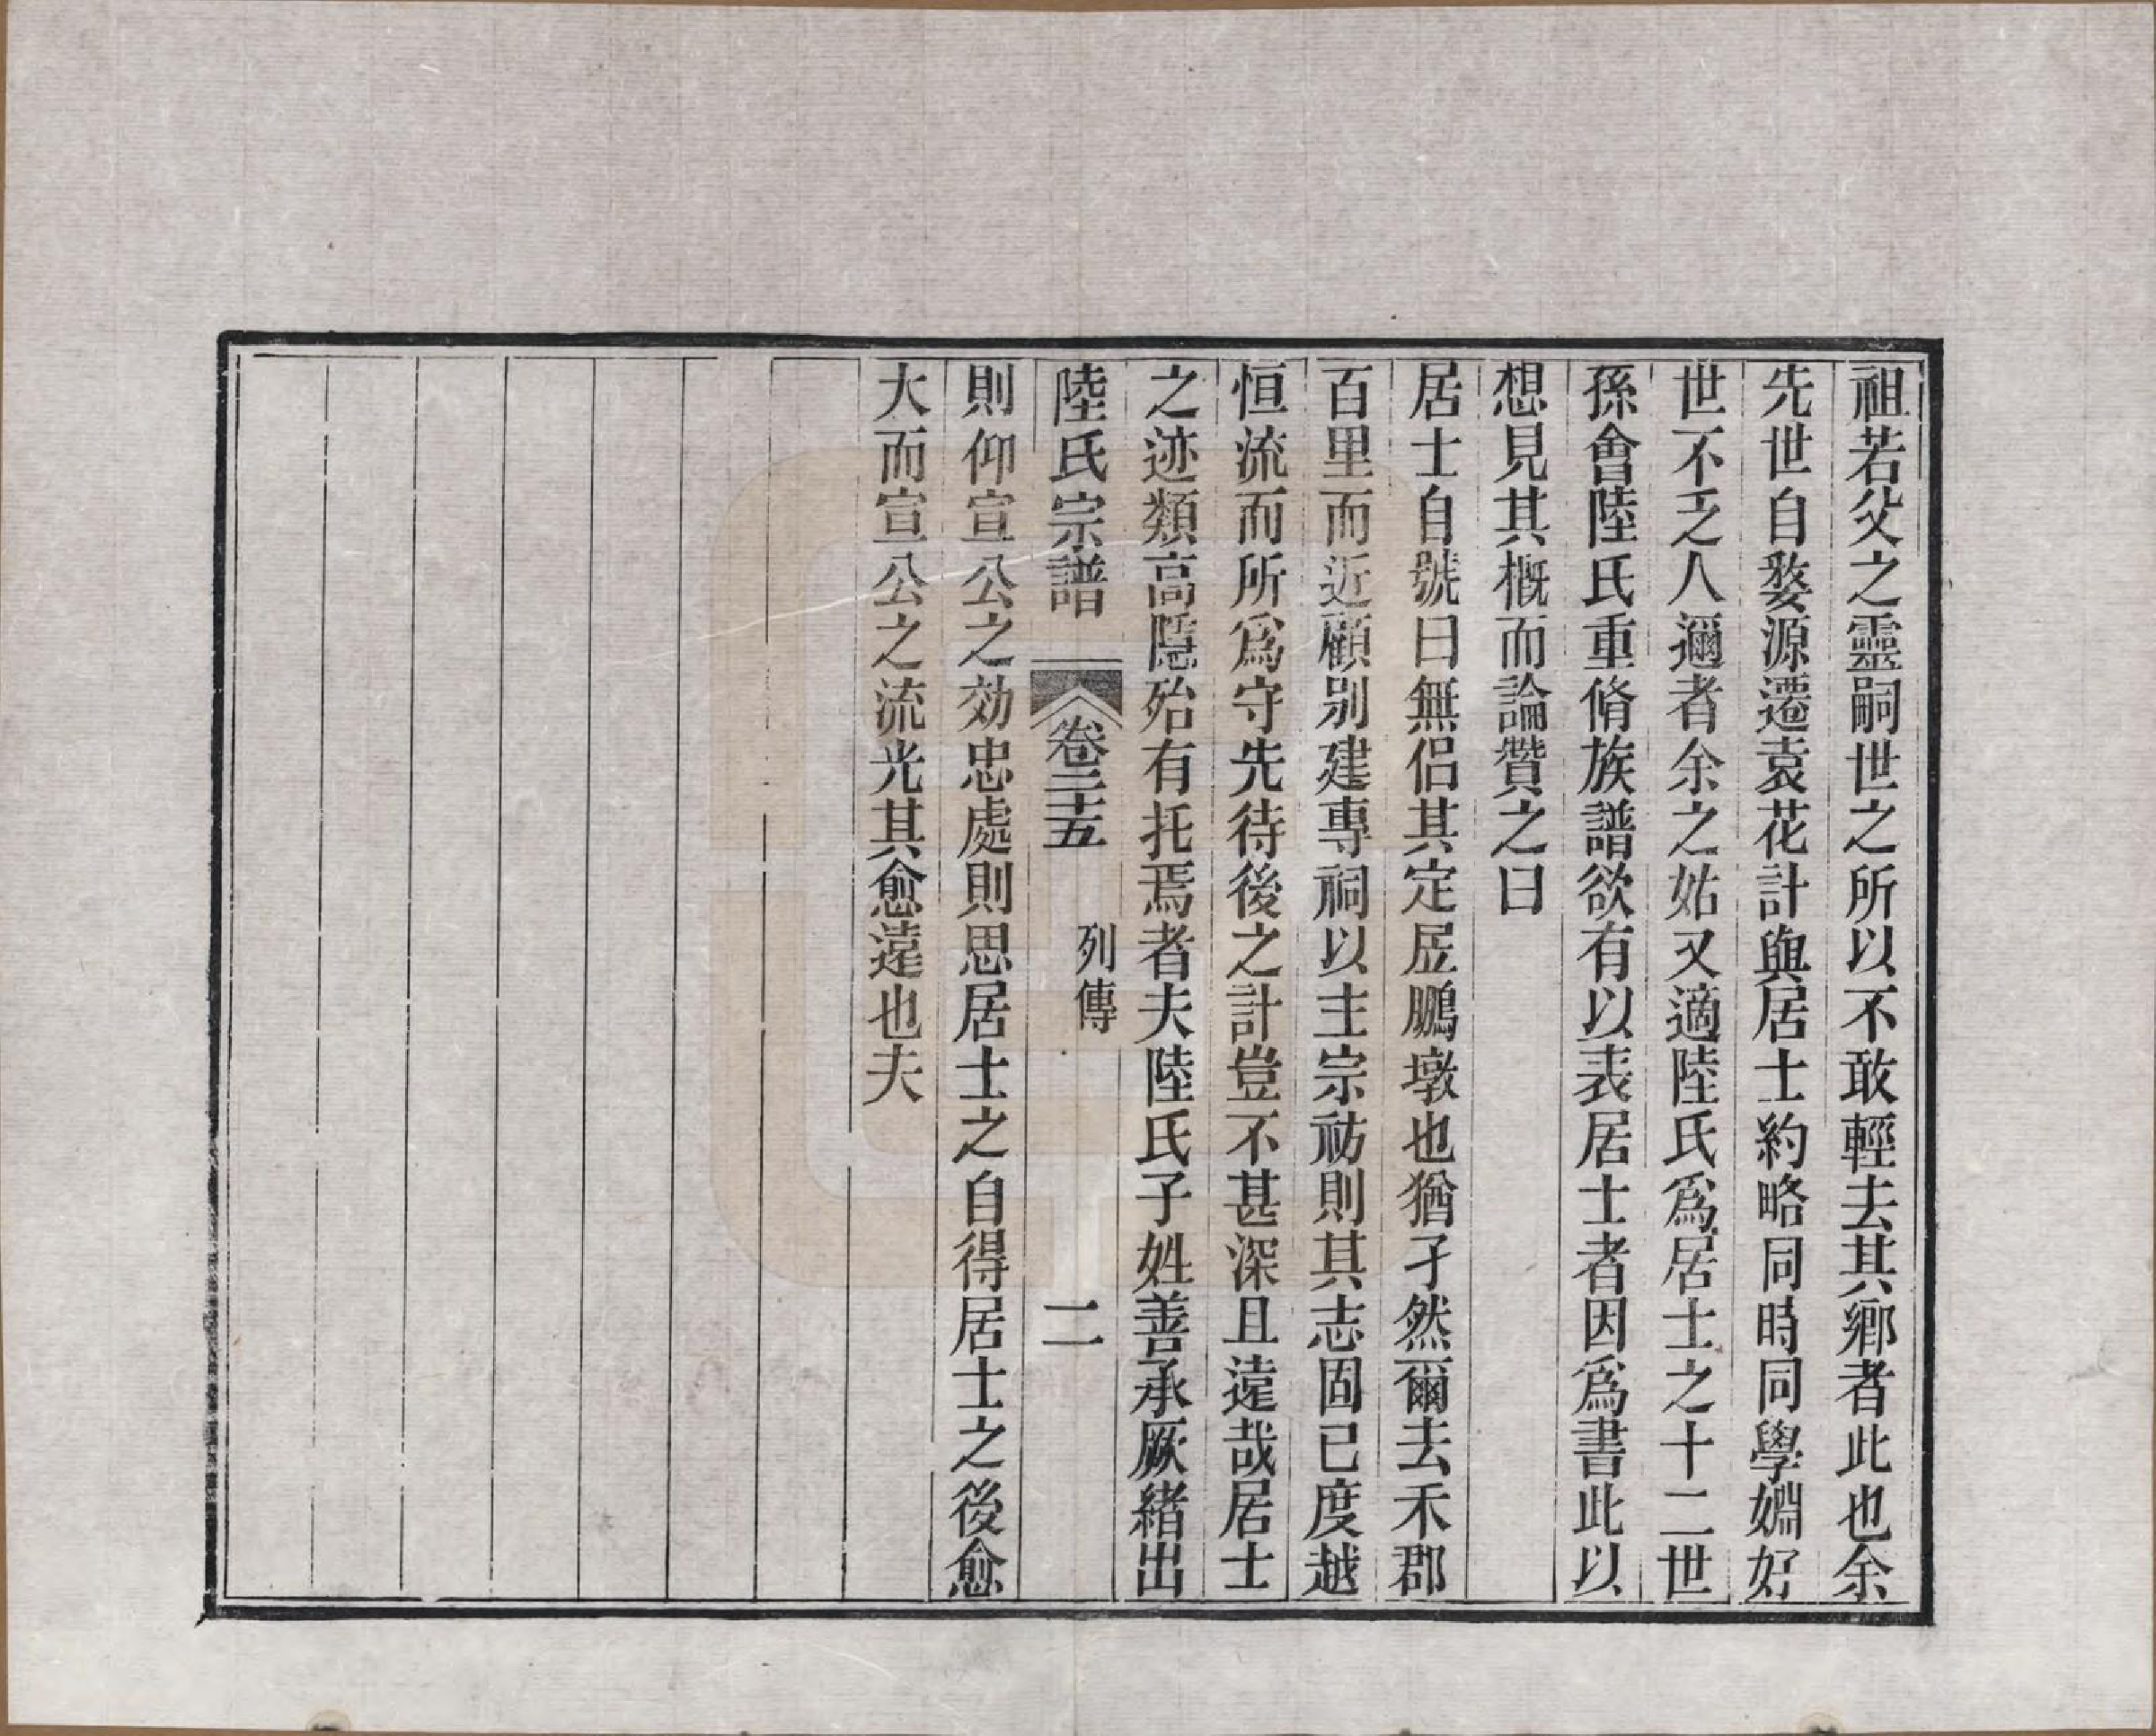 祖若父之靈嗣世之所以不敢輕去其鄉者此也余
先世自婺源遷袁花計與居士約略同時同學婣好
世不乏人邇者余之姑又適陸氏爲居士之十二世
孫會陸氏重脩族譜欲有以表居士者因爲書此以
想見其概而論贊之曰
居士自號曰無侣其定凥鵬墩也猶孑然爾去禾郡
百里而近顧别建專祠以主宗祊則其志固已度越
恒流而所爲守先待後之計豈不甚深且遠哉居士
之迹類高隱殆有托焉者夫陸氏子姓善承厥緒出
陸氏宗譜 卷二十五 列傳 二
則仰宣公之効忠處則思居士之自得居士之後愈
大而宣公之流光其愈遠也夫